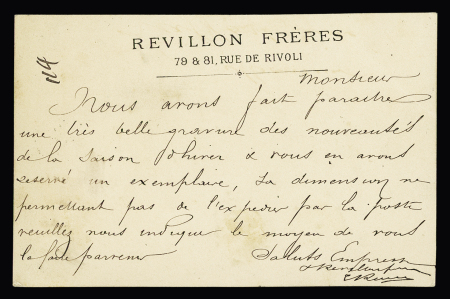 REVILLON FRÈRES
79 & 81, RUE DE RIVOLI
Monsieur
Nous avons fait paraitre
une très belle gravure des nouveautés
de la saison d'hiver & vous en avons
reservé un exemplaire, La dimension ne
permettant pas de l'expedier par la poste
veuillez nous indiquer le moyen de vous
la faire parvenir
Saluts Empress